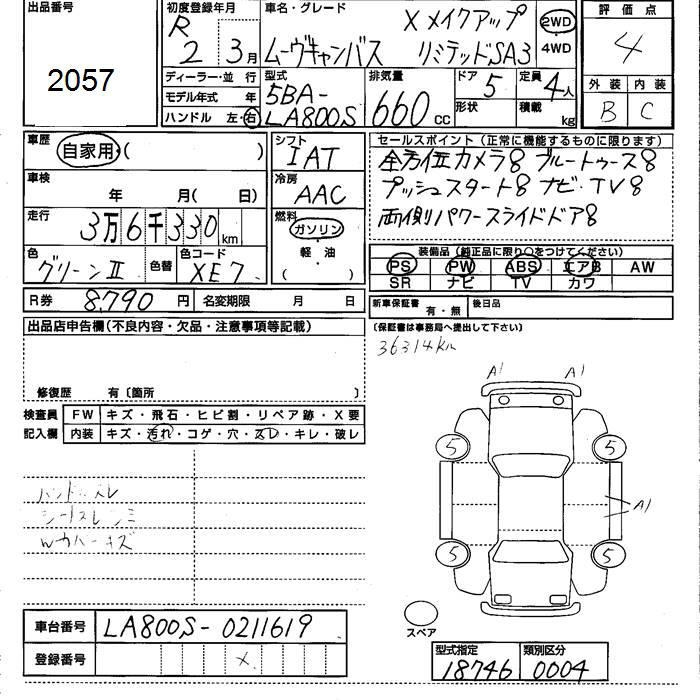 出品番号
2057
初度登録年月
R
2 3月
車名・グレード
X メイクアップ
ムーヴキャンバス リミテッドSA3
2WD
4WD
評価点
4
外装 内装
B C
ディーラー・並行
モデル年式 年
ハンドル 左・右
型式
5BA-
LA800S
排気量
660 cc
ドア
5
形状
定員
4人
積載
kg
車歴
自家用・( )
シフト
IAT
セールスポイント(正常に機能するものに限ります)
全方位カメラ8 ブルートゥース8
プッシュスタート8 ナビ・TV8
両側パワースライドドア8
車検
年 月( 日)
冷房
AAC
走行
3万6千330km
燃料
ガソリン
軽・油
( )
色
グリーンⅡ
色替
色コード
XE7
装備品(純正品に限り○をつけてください)
PS PW ABS エアB AW
SR ナビ TV カワ
R券 8,790 円
名変期限 月 日
新車保証書 有・無
後日品
出品店申告欄(不良内容・欠品・注意事項等記載)
(保証書は事務局へ提出して下さい)
36314km
修復歴 有〔箇所 〕
検査員
記入欄
FW キズ・飛石・ヒビ割・リペア跡・X要
内装 キズ・汚れ・コゲ・穴・スレ・キレ・破レ
A1 A1
5 5
A1
5 5
スペア
車台番号 LA800S-0211619
登録番号 X
型式指定 類別区分
18746 0004